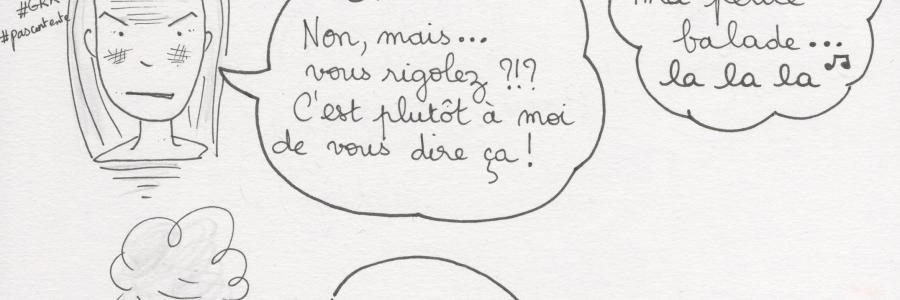 #GRR
#pascontente
Non, mais...
vous rigolez ?!?
C'est plutôt à moi
de vous dire ça !
balade...
la la la